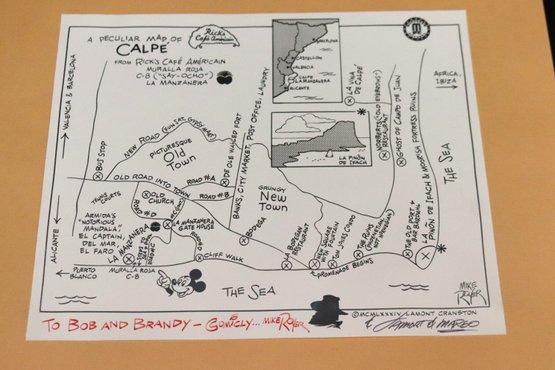 A PECULIAR MAP OF
CALPE
Rick's
Café Américain
FROM RICK'S CAFÉ AMÉRICAIN
MURALLA ROJA
C-8 ("SAY-OCHO")
LA MANZANERA
BARCELONA
CASTELLON
VALENCIA
CALPE
LA MANZANERA
ALICANTE
LA VIÑA
DE CALPE
LA PIÑON DE
IFACH
AFRICA,
IBIZA
VALENCIA & BARCELONA
BUS STOP
NEW ROAD
PICTURESQUE
Old
Town
OLD ROAD INTO TOWN
ROAD #A
ROAD #B
ROAD #D
TENNIS COURTS
OLD
CHURCH
DE OLE WALLED FORT
BANKS, CITY MARKET, POST OFFICE, LAUNDRY
GRUNGY
New
Town
ARMIDA'S
"NOTORIOUS
MANDALA"
EL CAPITAN,
DEL MAR,
EL FARO
LA MANZANERA
MANZANERA
GATE HOUSE
BODEGA
CLIFF WALK
LA BODEGA
RESTAURANT
PROMENADE BEGINS
NORBERTO'S
RESTAURANT
GHOST OF CAMPO DE JUAN
THE OLD PORT &
BAR BARBARA
LA PIÑON DE IFACH & MOORISH FORTRESS RUINS
THE SEA
ALICANTE
PUERTO
BLANCO
MURALLA ROJA
C-8
THE SEA
MIKE
ROYER
©MCMLXXXIV LAMONT CRANSTON
& Lamont & Margo
TO BOB AND BRANDY – COMICLY... MIKE ROYER